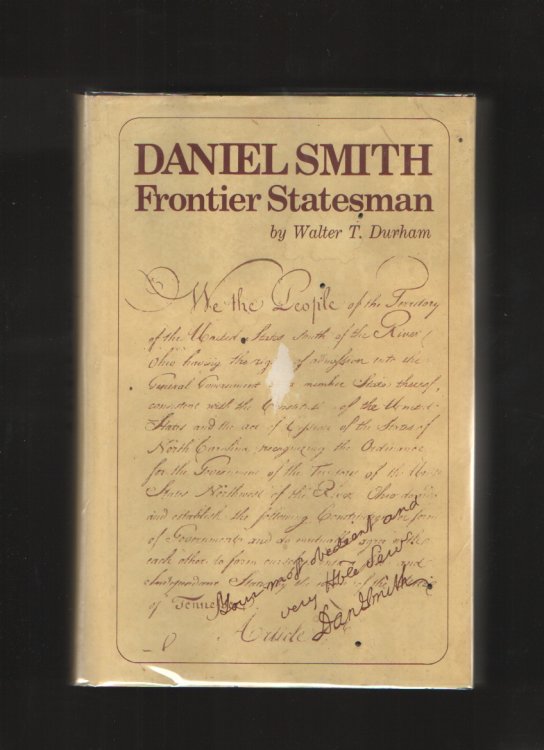 DANIEL SMITH
Frontier Statesman
by Walter T. Durham
We the People of the Territory
of the United States South of the River
Ohio having the right of admission into the
General Government as a member State thereof,
consistent with the Constitution of the United
States and the act of Cession of the State of
North Carolina, recognizing the Ordinance
for the Government of the Territory of the United
States Northwest of the River Ohio do
and establish the following Constitution or form
of Government and do mutually agree with
each other to form ourselves and
Independent State by the name of the State
of Tennessee
Article
Your most obedient and
very Hble Serv.
Dan Smith